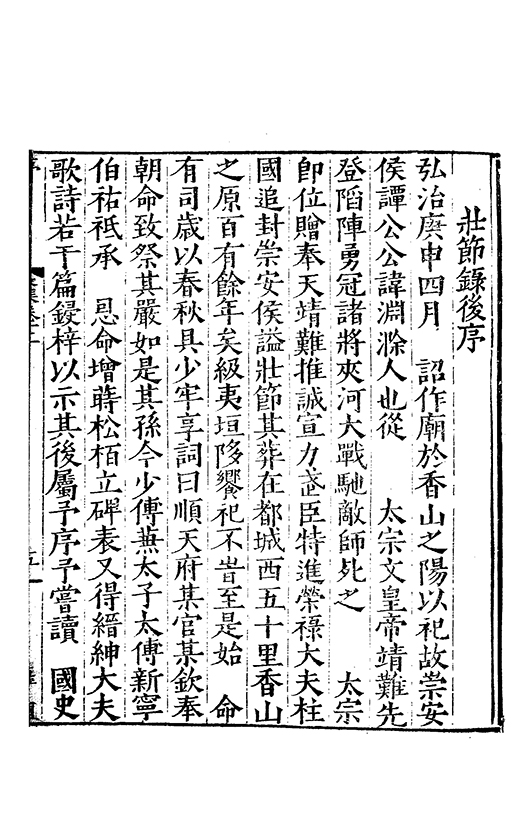 壯節錄後序
弘治庚申四月 詔作廟於香山之陽以祀故崇安
侯譚公公諱淵滁人也從 太宗文皇帝靖難先
登䧟陣勇冠諸將夾河大戰馳敵師死之 太宗
即位贈奉天靖難推誠宣力武臣特進榮祿大夫柱
國追封崇安侯謚壯節其葬在都城西五十里香山
之原百有餘年矣級夷垣陊饗祀不旹至是始 命
有司歲以春秋具少牢享詞曰順天府某官某欽奉
朝命致祭其嚴如是其孫今少傅兼太子太傅新寧
伯祐祗承 恩命增蒔松栢立碑表又得縉紳大夫
歌詩若干篇鋟梓以示其後屬予序予嘗讀 國史